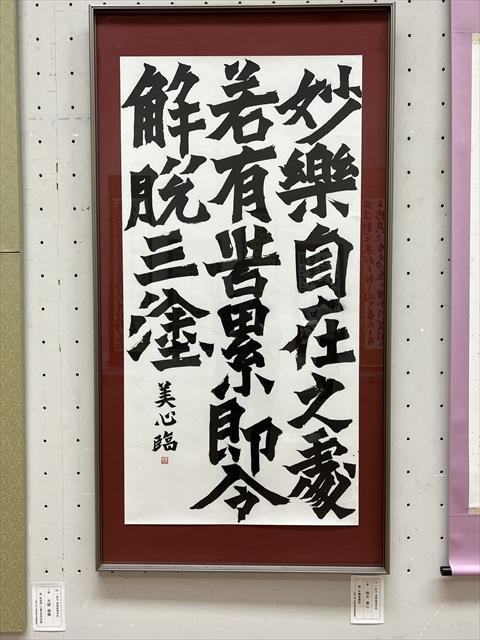 妙樂自在之處
若有苦累即令
解脱三塗
美心臨